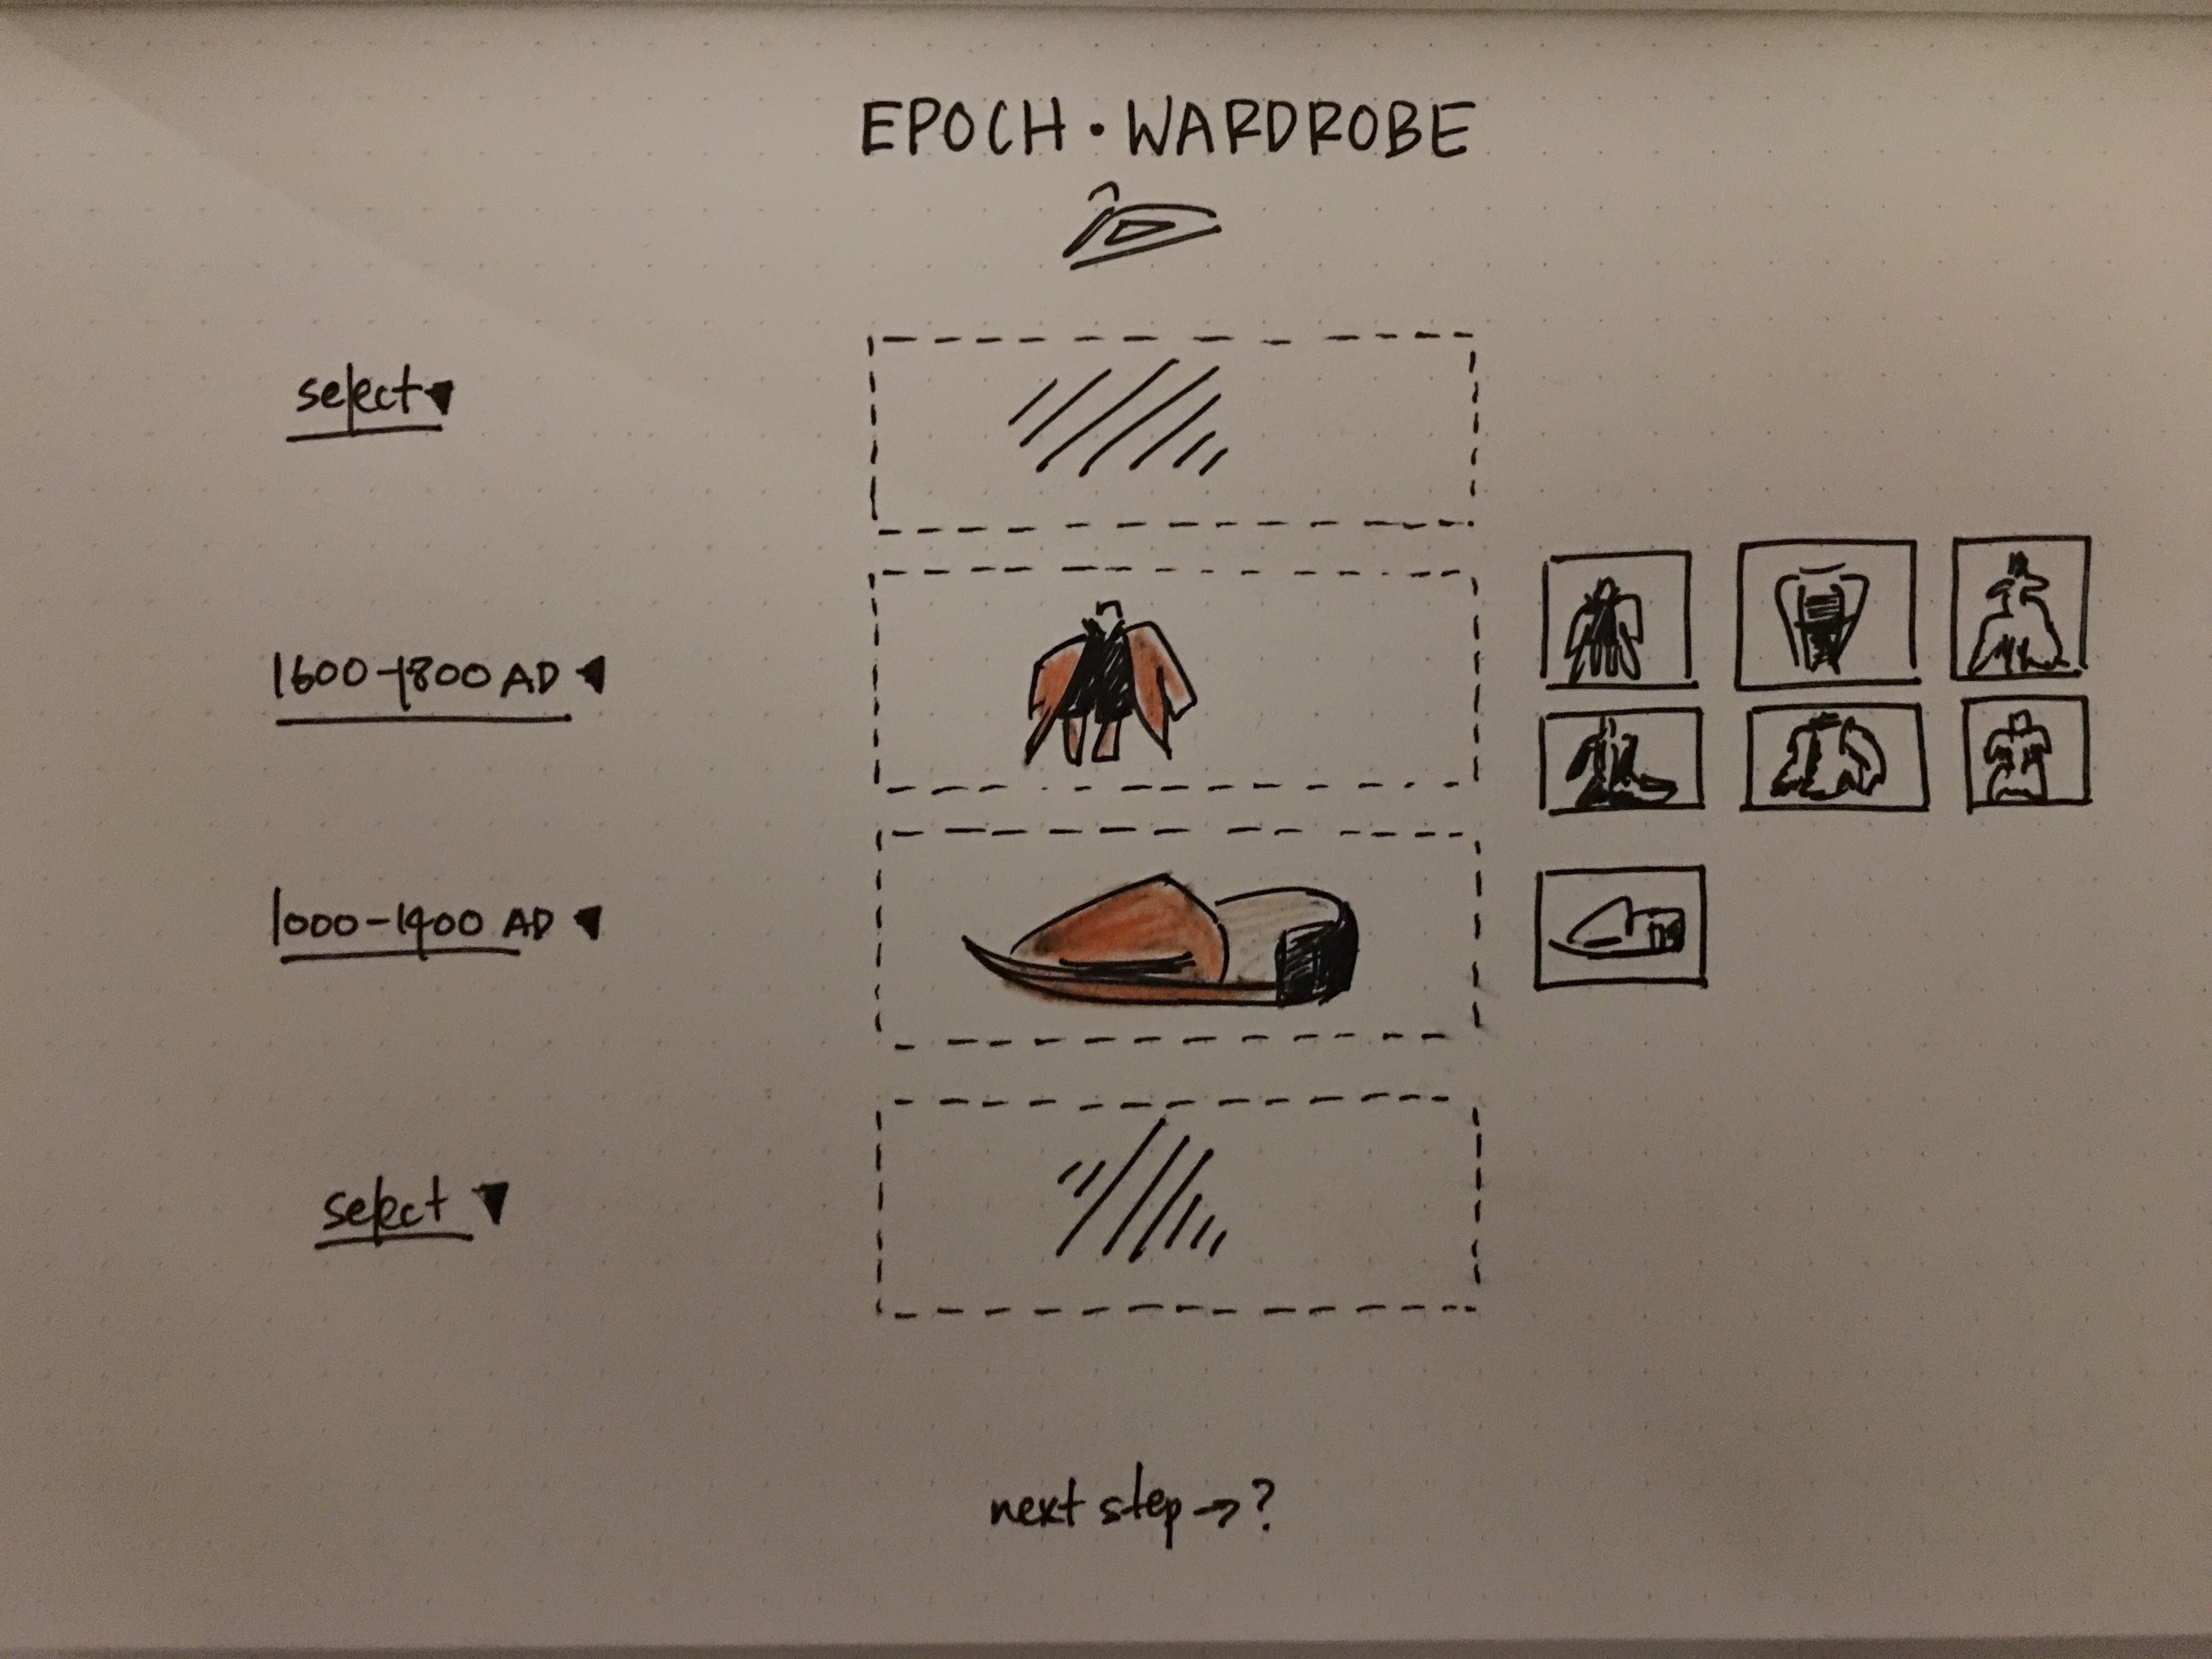 EPOCH • WARDROBE
select
1600-1800 AD
1000-1400 AD
select
next step → ?